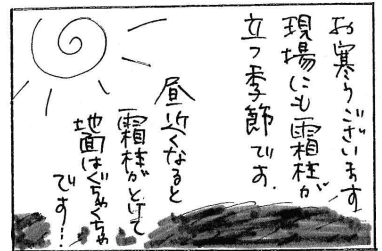 お寒うございます
現場にも霜柱が
立つ季節です.
昼近くなると
霜柱がとけて
地面はぐちゃぐちゃ
です!